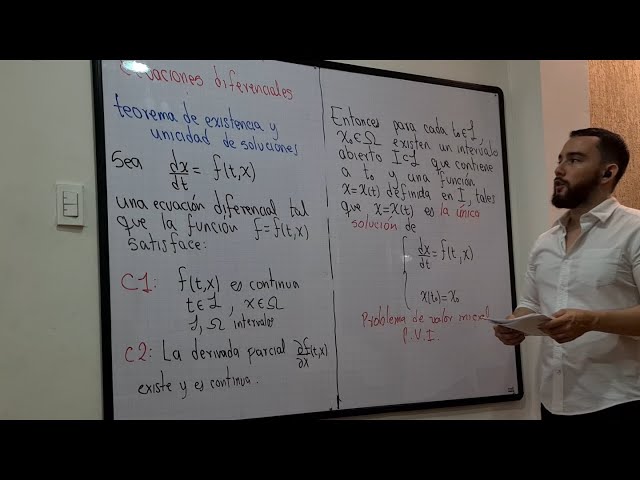 Ecuaciones diferenciales
teorema de existencia y
unicidad de soluciones
Sea dx/dt = f(t,x)
una ecuación diferencial tal
que la función f=f(t,x)
satisface:
C1: f(t,x) es continua
t∈L, x∈Ω
L, Ω intervalos
C2: La derivada parcial ∂f/∂x(t,x)
existe y es continua.
Entonces para cada t₀∈L,
x₀∈Ω existen un intervalo
abierto I⊂L que contiene
a t₀ y una función
x=x(t) definida en I, tales
que, x=x(t) es la única
solución de
{ dx/dt = f(t,x)
x(t₀)=x₀
Problema de valor inicial
P.V.I.